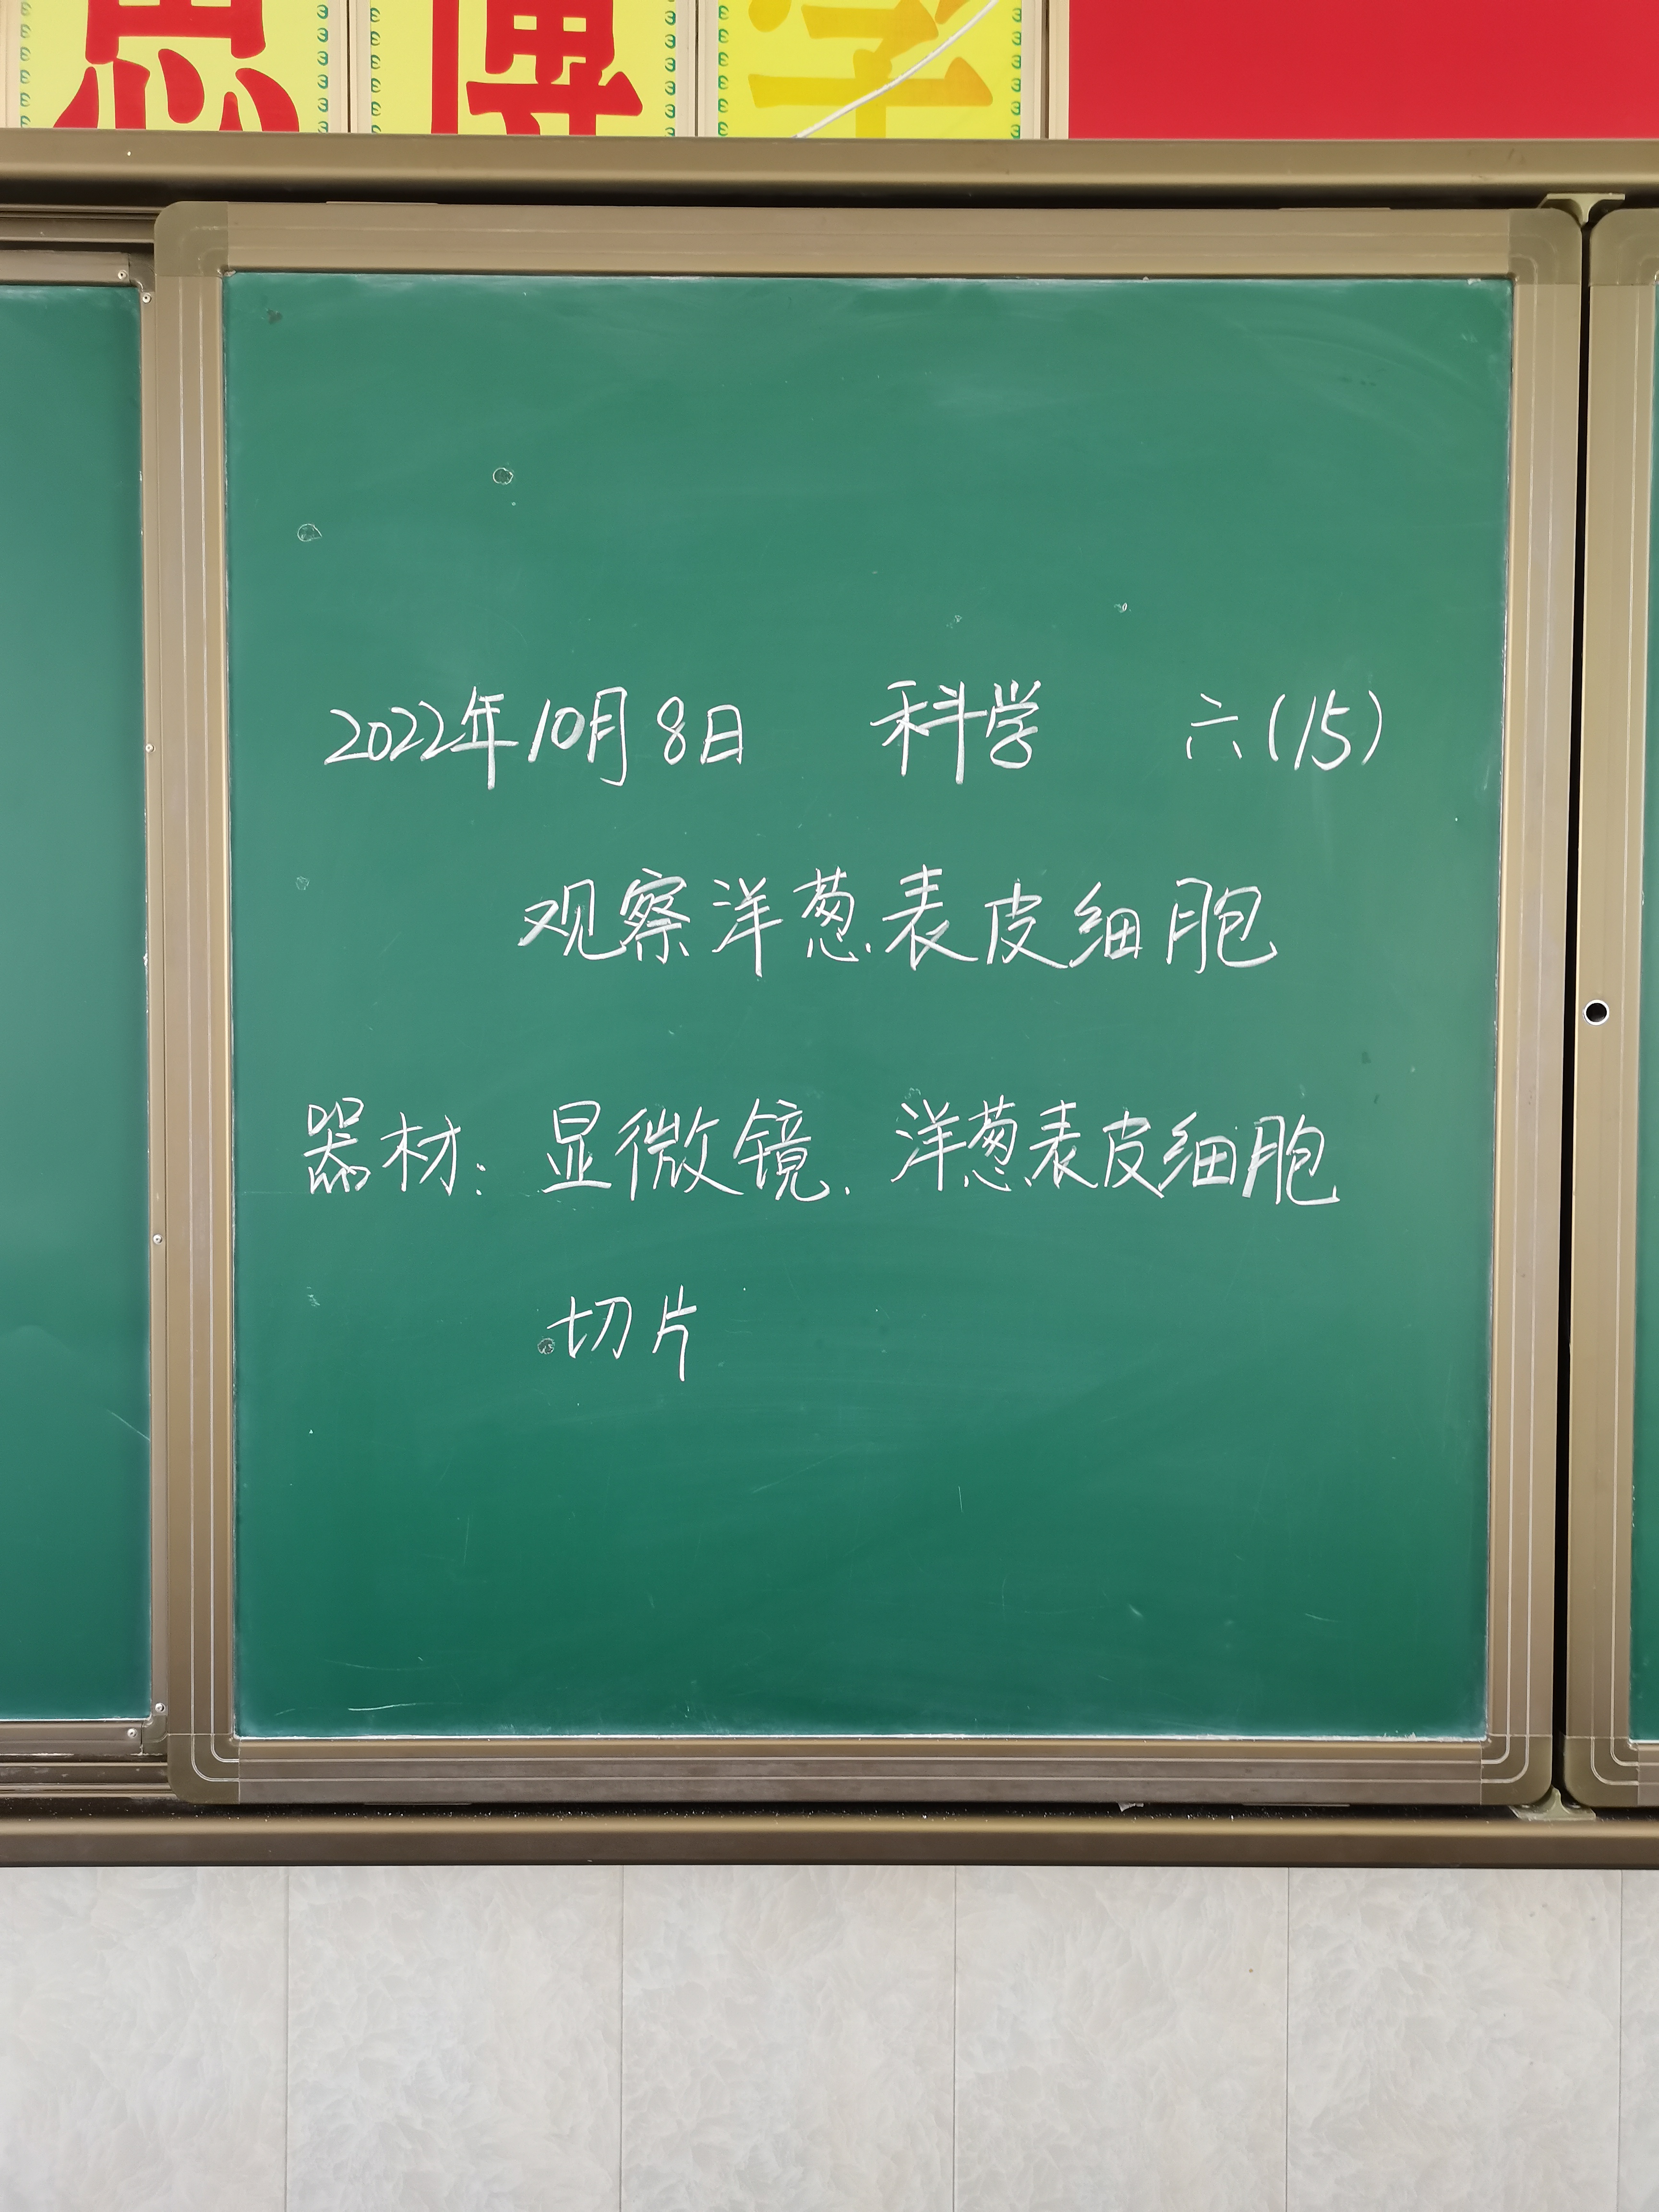 思博学
2022年10月8日 科学 六(15)
观察洋葱表皮细胞
器材：显微镜、洋葱表皮细胞
切片